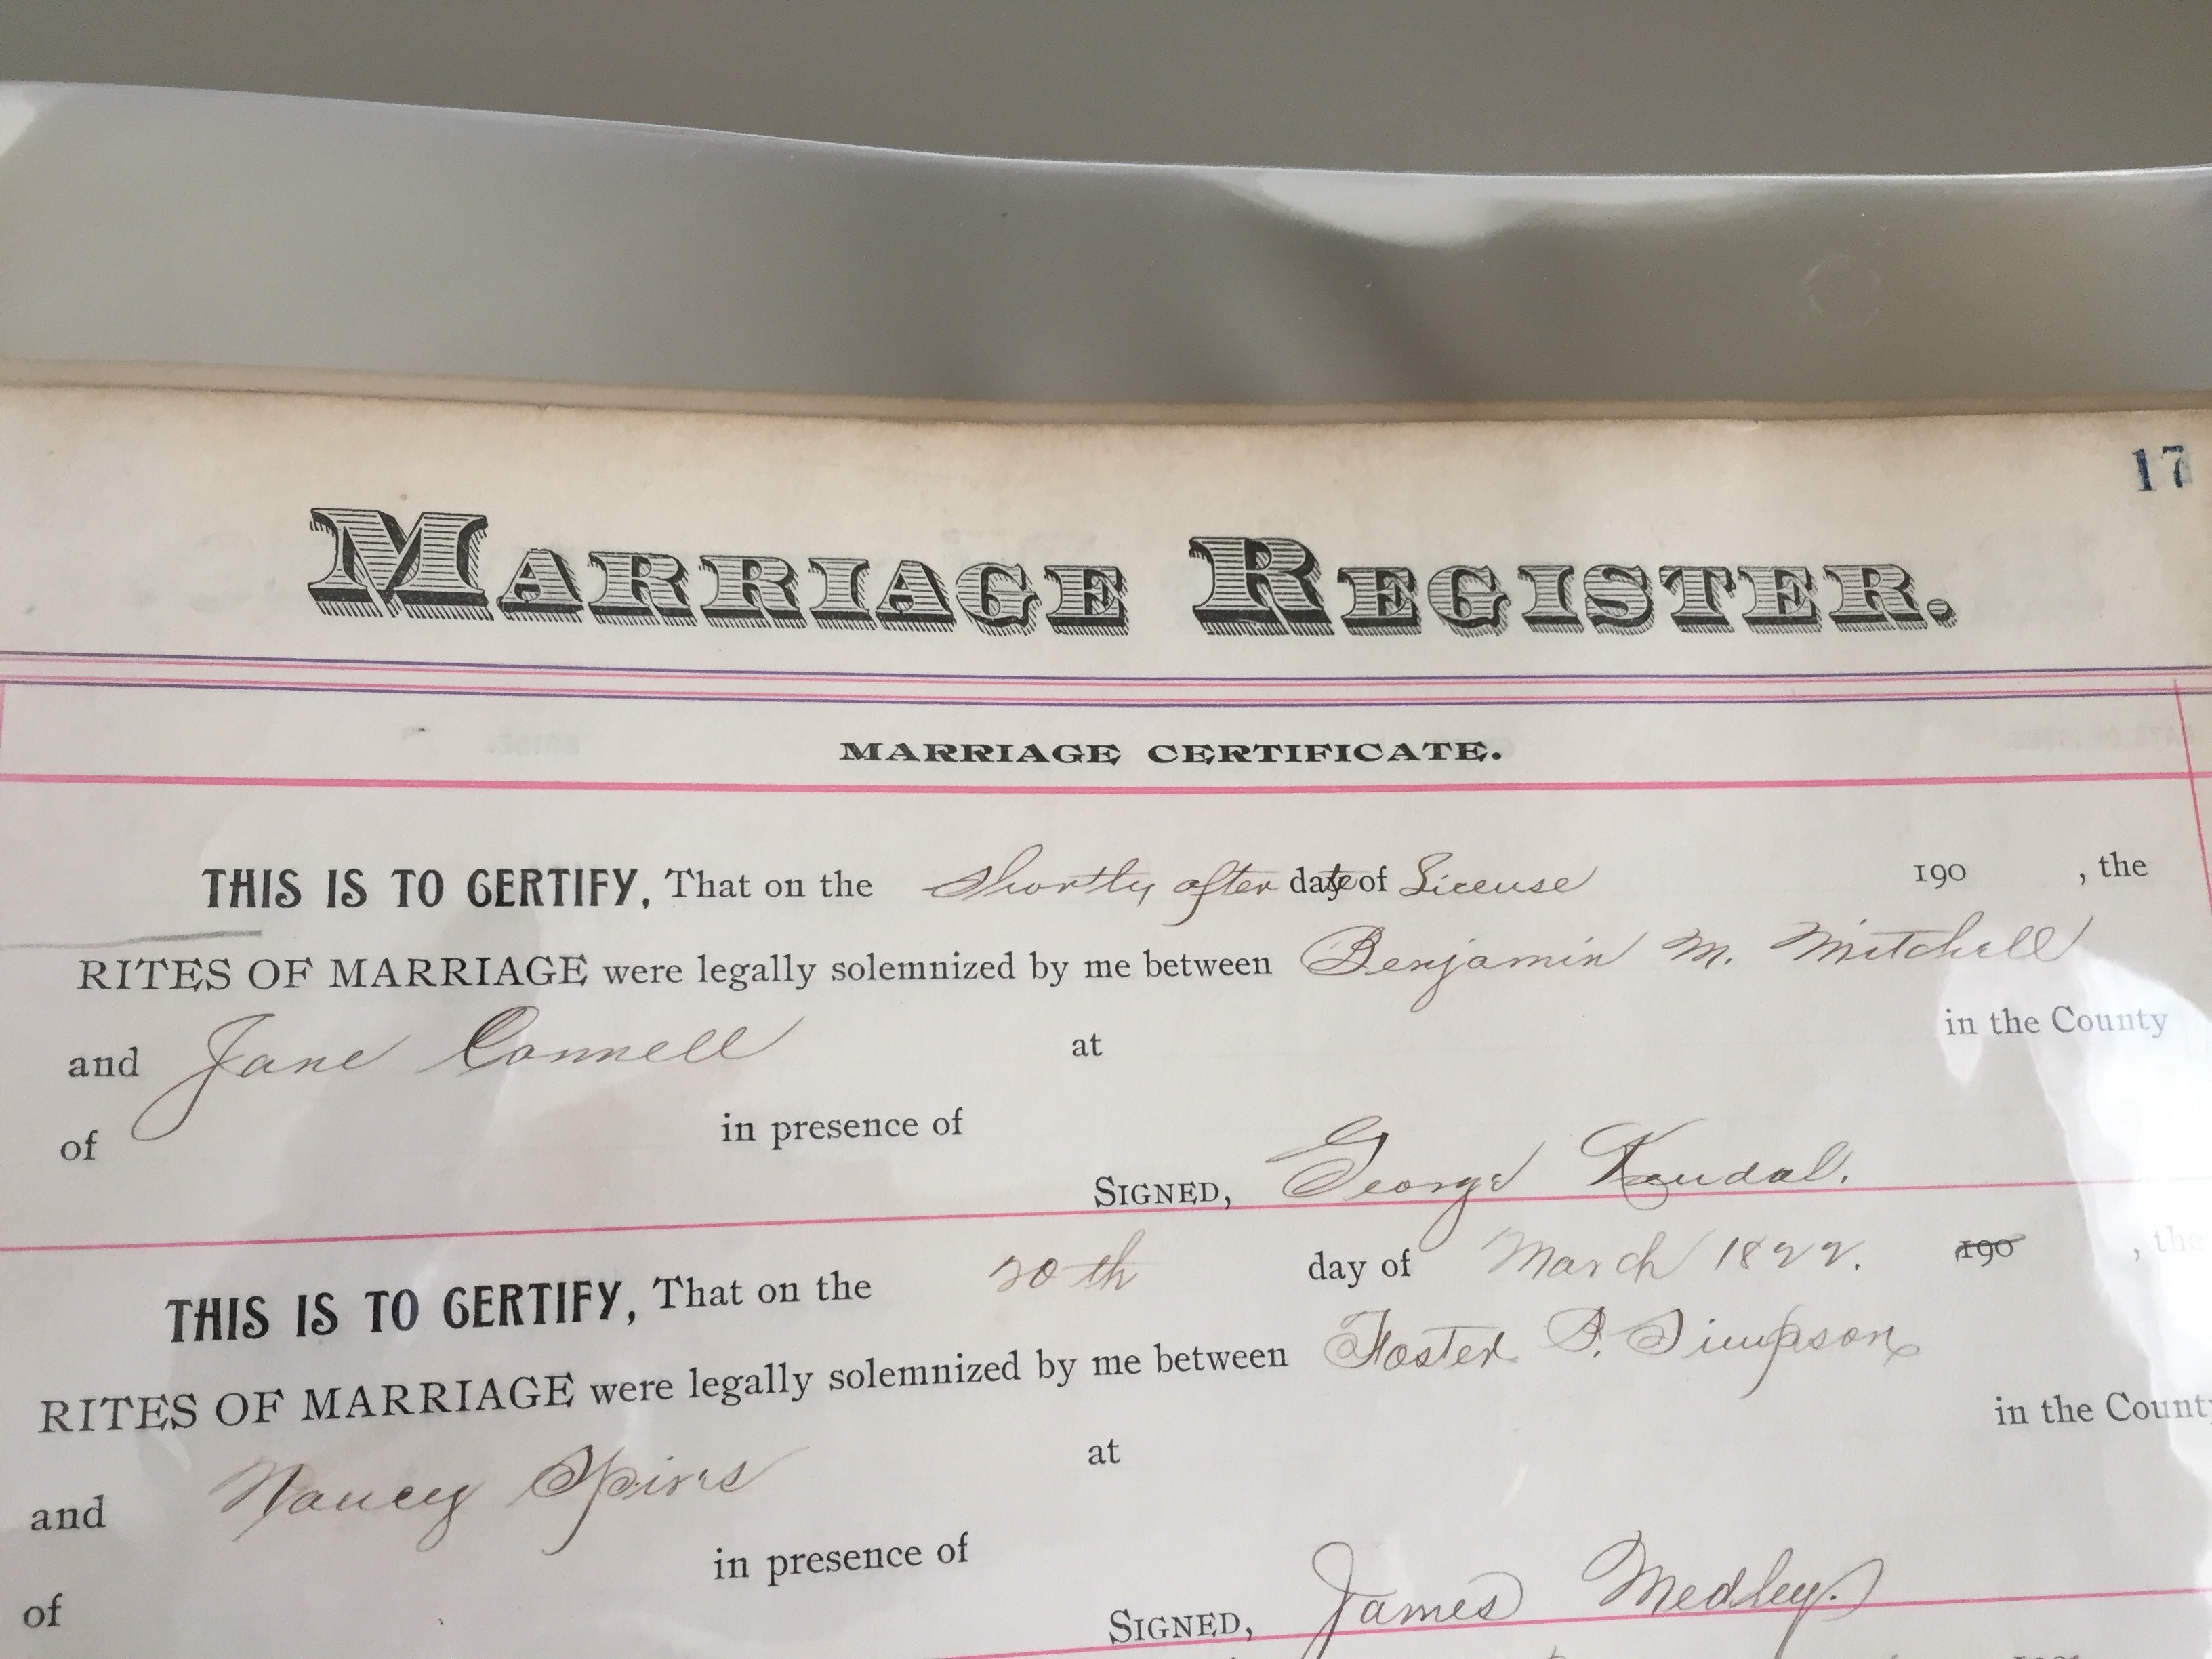 17
MARRIAGE REGISTER.
MARRIAGE CERTIFICATE.
THIS IS TO CERTIFY, That on the Shortly after date of License 190 , the
RITES OF MARRIAGE were legally solemnized by me between Benjamin M. Mitchell
and Jane Connell at in the County
of in presence of
SIGNED, George Kendal.
THIS IS TO CERTIFY, That on the 20th day of March 1822. 190 , the
RITES OF MARRIAGE were legally solemnized by me between Foster P. Simpson
and Nancy Spires at in the County
of in presence of
SIGNED, James Medley.